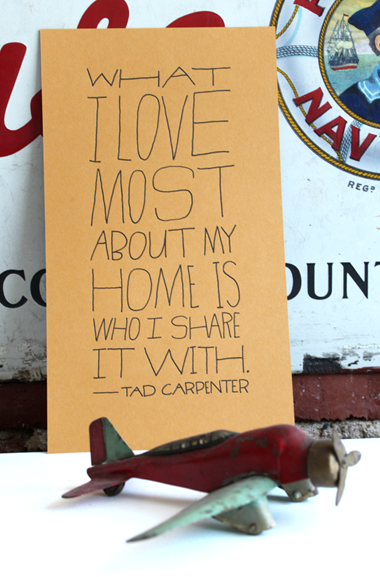 WHAT
I LOVE
MOST
ABOUT MY
HOME IS
WHO I SHARE
IT WITH.
—TAD CARPENTER
NAV
REGD
CO
OUNT